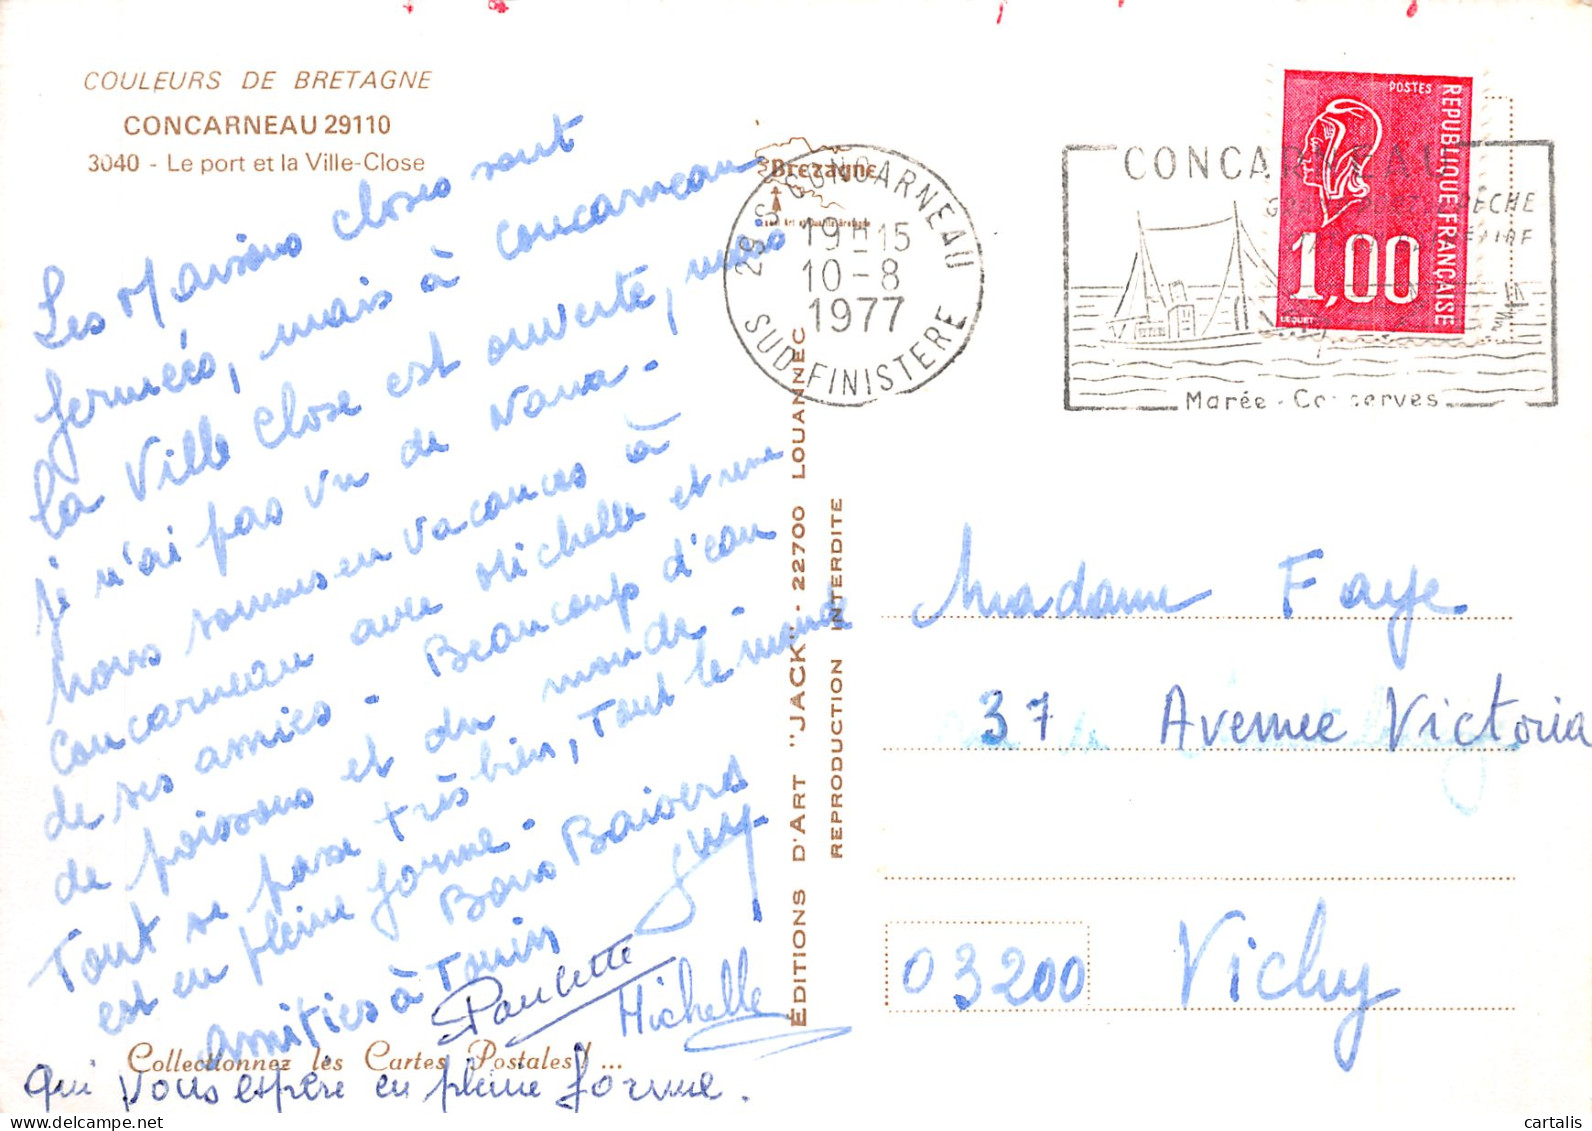 COULEURS DE BRETAGNE
CONCARNEAU 29110
3040 - Le port et la Ville-Close
Les Maisons closes sont
fermées, mais à Concarneau
la Ville Close est ouverte, mais
je n'ai pas vu de Nana.
Nous sommes en vacances à
Concarneau avec Michelle et une
de ses amies. Beaucoup d'eau
de poissons et du monde.
Tout se passe très bien, Tout le monde
est en pleine forme.
Bons Baisers
Amitiés à Tonin
Guy
Paulette
Michelle
Collectionnez les Cartes Postales! ...
qui vous espère en pleine forme.
Bretagne
29 S CONCARNEAU
19H15
10-8
1977
SUD-FINISTERE
ÉDITIONS D'ART "JACK" - 22700 LOUANNEC
REPRODUCTION INTERDITE
CONCARNEAU
PÊCHE
Marée - Conserves
POSTES
REPUBLIQUE FRANÇAISE
1,00
Madame Faye
37 Avenue Victoria
03200 Vichy
cartalis